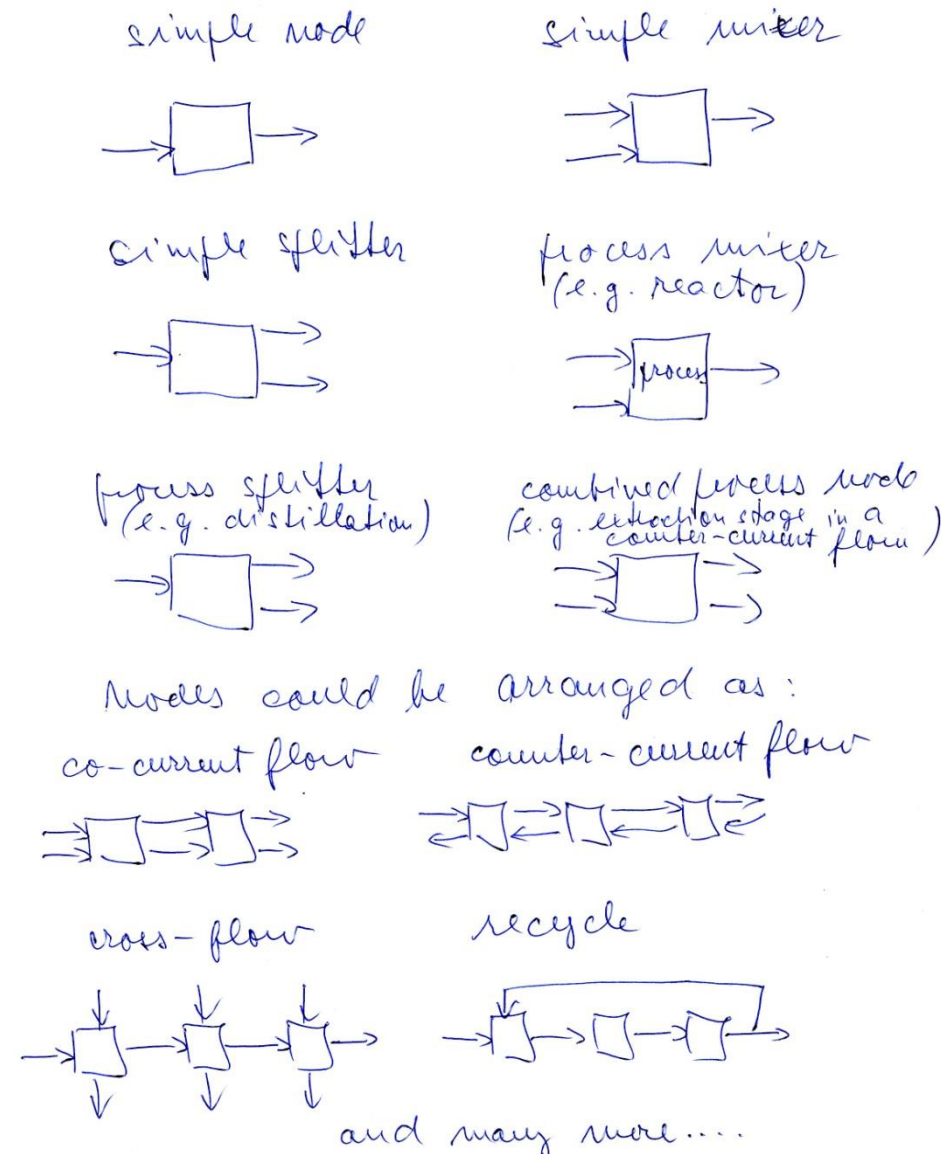 simple node
simple mixer
simple splitter
process mixer
(e.g. reactor)
process
process splitter
(e.g. distillation)
combined process node
(e.g. extraction stage in a
counter-current flow)
Nodes could be arranged as:
co-current flow
counter-current flow
cross-flow
recycle
and many more....